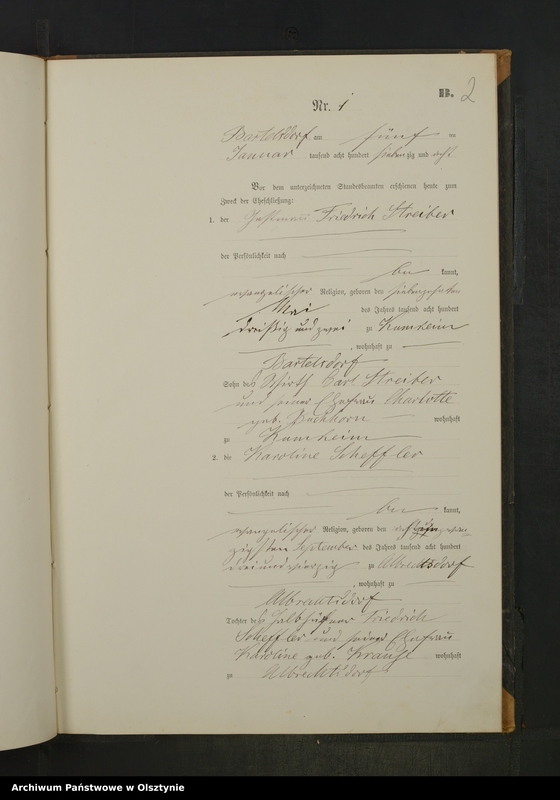 B. 2
Nr. 1
Bartelsdorf am fünf ten
Januar tausend acht hundert siebenzig und acht
Vor dem unterzeichneten Standesbeamten erschienen heute zum
Zweck der Eheschließung:
1. der Friedrich Streiber
der Persönlichkeit nach
be kannt,
evangelischer Religion, geboren den siebenzehnten
Mai des Jahres tausend acht hundert
dreißig und zwei zu Kumheim
, wohnhaft zu
Bartelsdorf
Sohn des Wirth Carl Streiber
und seiner Ehefrau Charlotte
geb. wohnhaft
zu Kumheim
2. die Karoline Scheffler
der Persönlichkeit nach
be kannt,
evangelischer Religion, geboren den
zigsten September des Jahres tausend acht hundert
dreiundvierzig zu Albrechtsdorf
, wohnhaft zu
Albrechtsdorf
Tochter des Halbhüfners Friedrich
Scheffler und seiner Ehefrau
Karoline geb. Krause wohnhaft
zu Albrechtsdorf
Archiwum Państwowe w Olsztynie